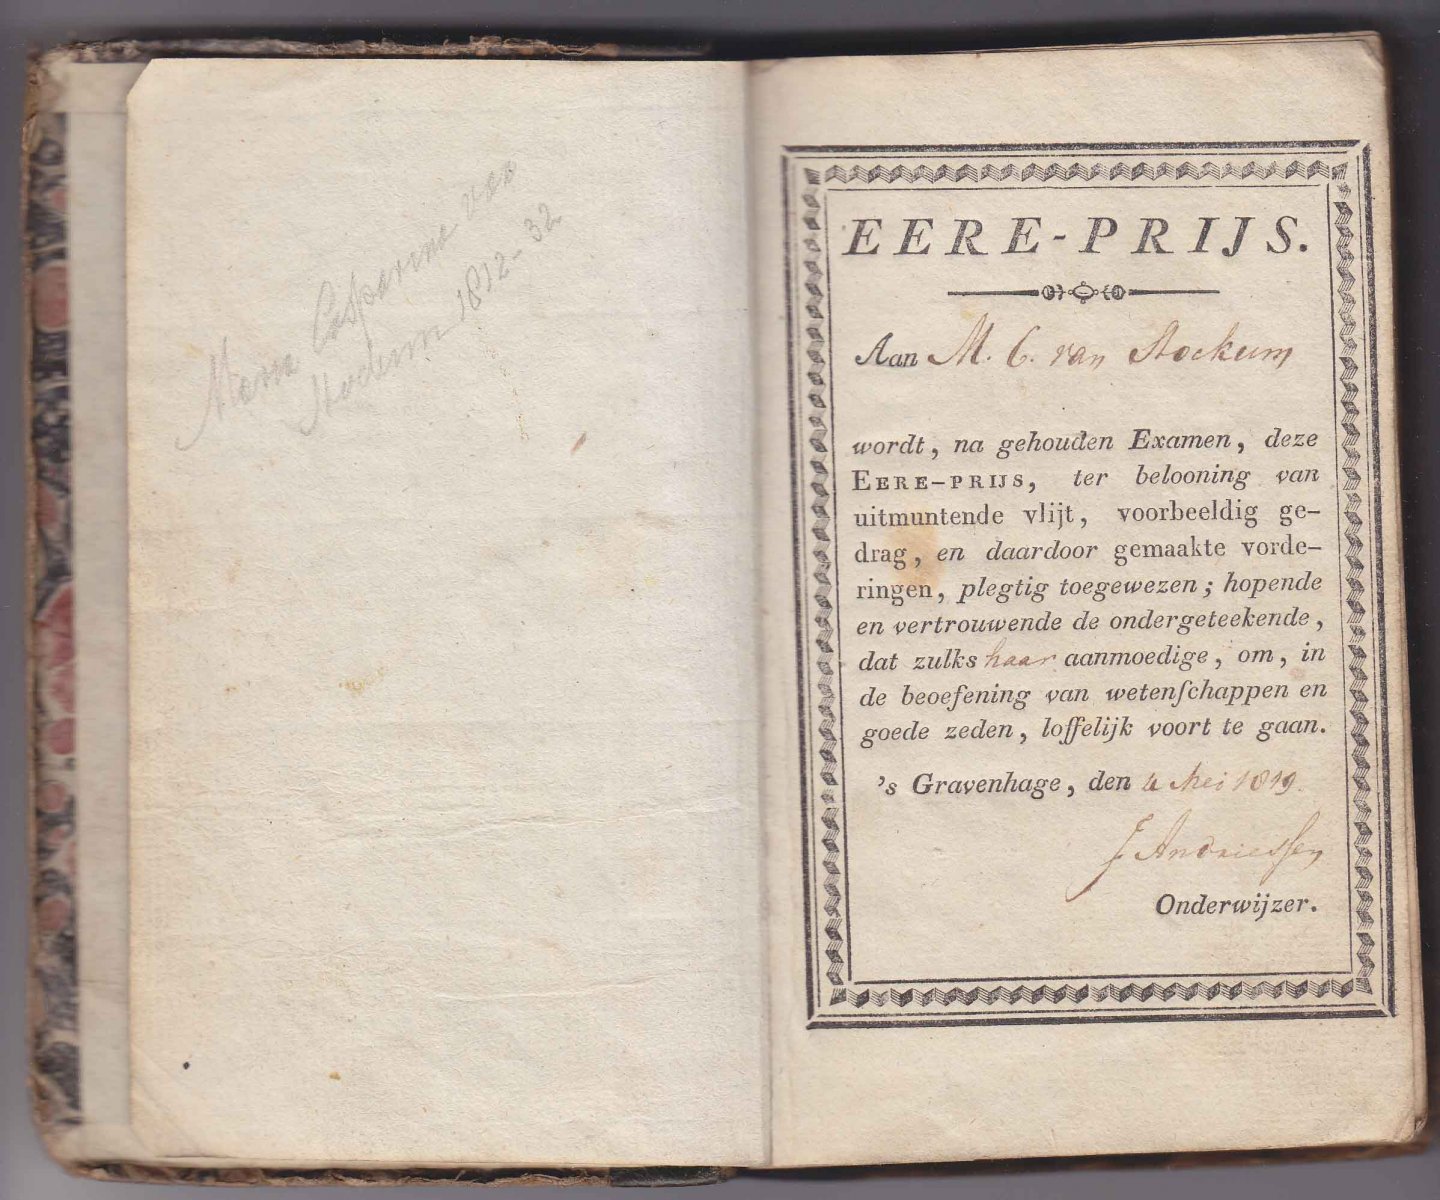 Maria Casparina van
Stockum 1812-32
EERE-PRIJS.
Aan M. C. van Stockum
wordt, na gehouden Examen, deze
EERE-PRIJS, ter belooning van
uitmuntende vlijt, voorbeeldig ge-
drag, en daardoor gemaakte vorde-
ringen, plegtig toegewezen; hopende
en vertrouwende de ondergeteekende,
dat zulks haar aanmoedige, om, in
de beoefening van wetenſchappen en
goede zeden, loffelijk voort te gaan.
's Gravenhage, den 4 Mei 1819.
J Andriesſen
Onderwijzer.